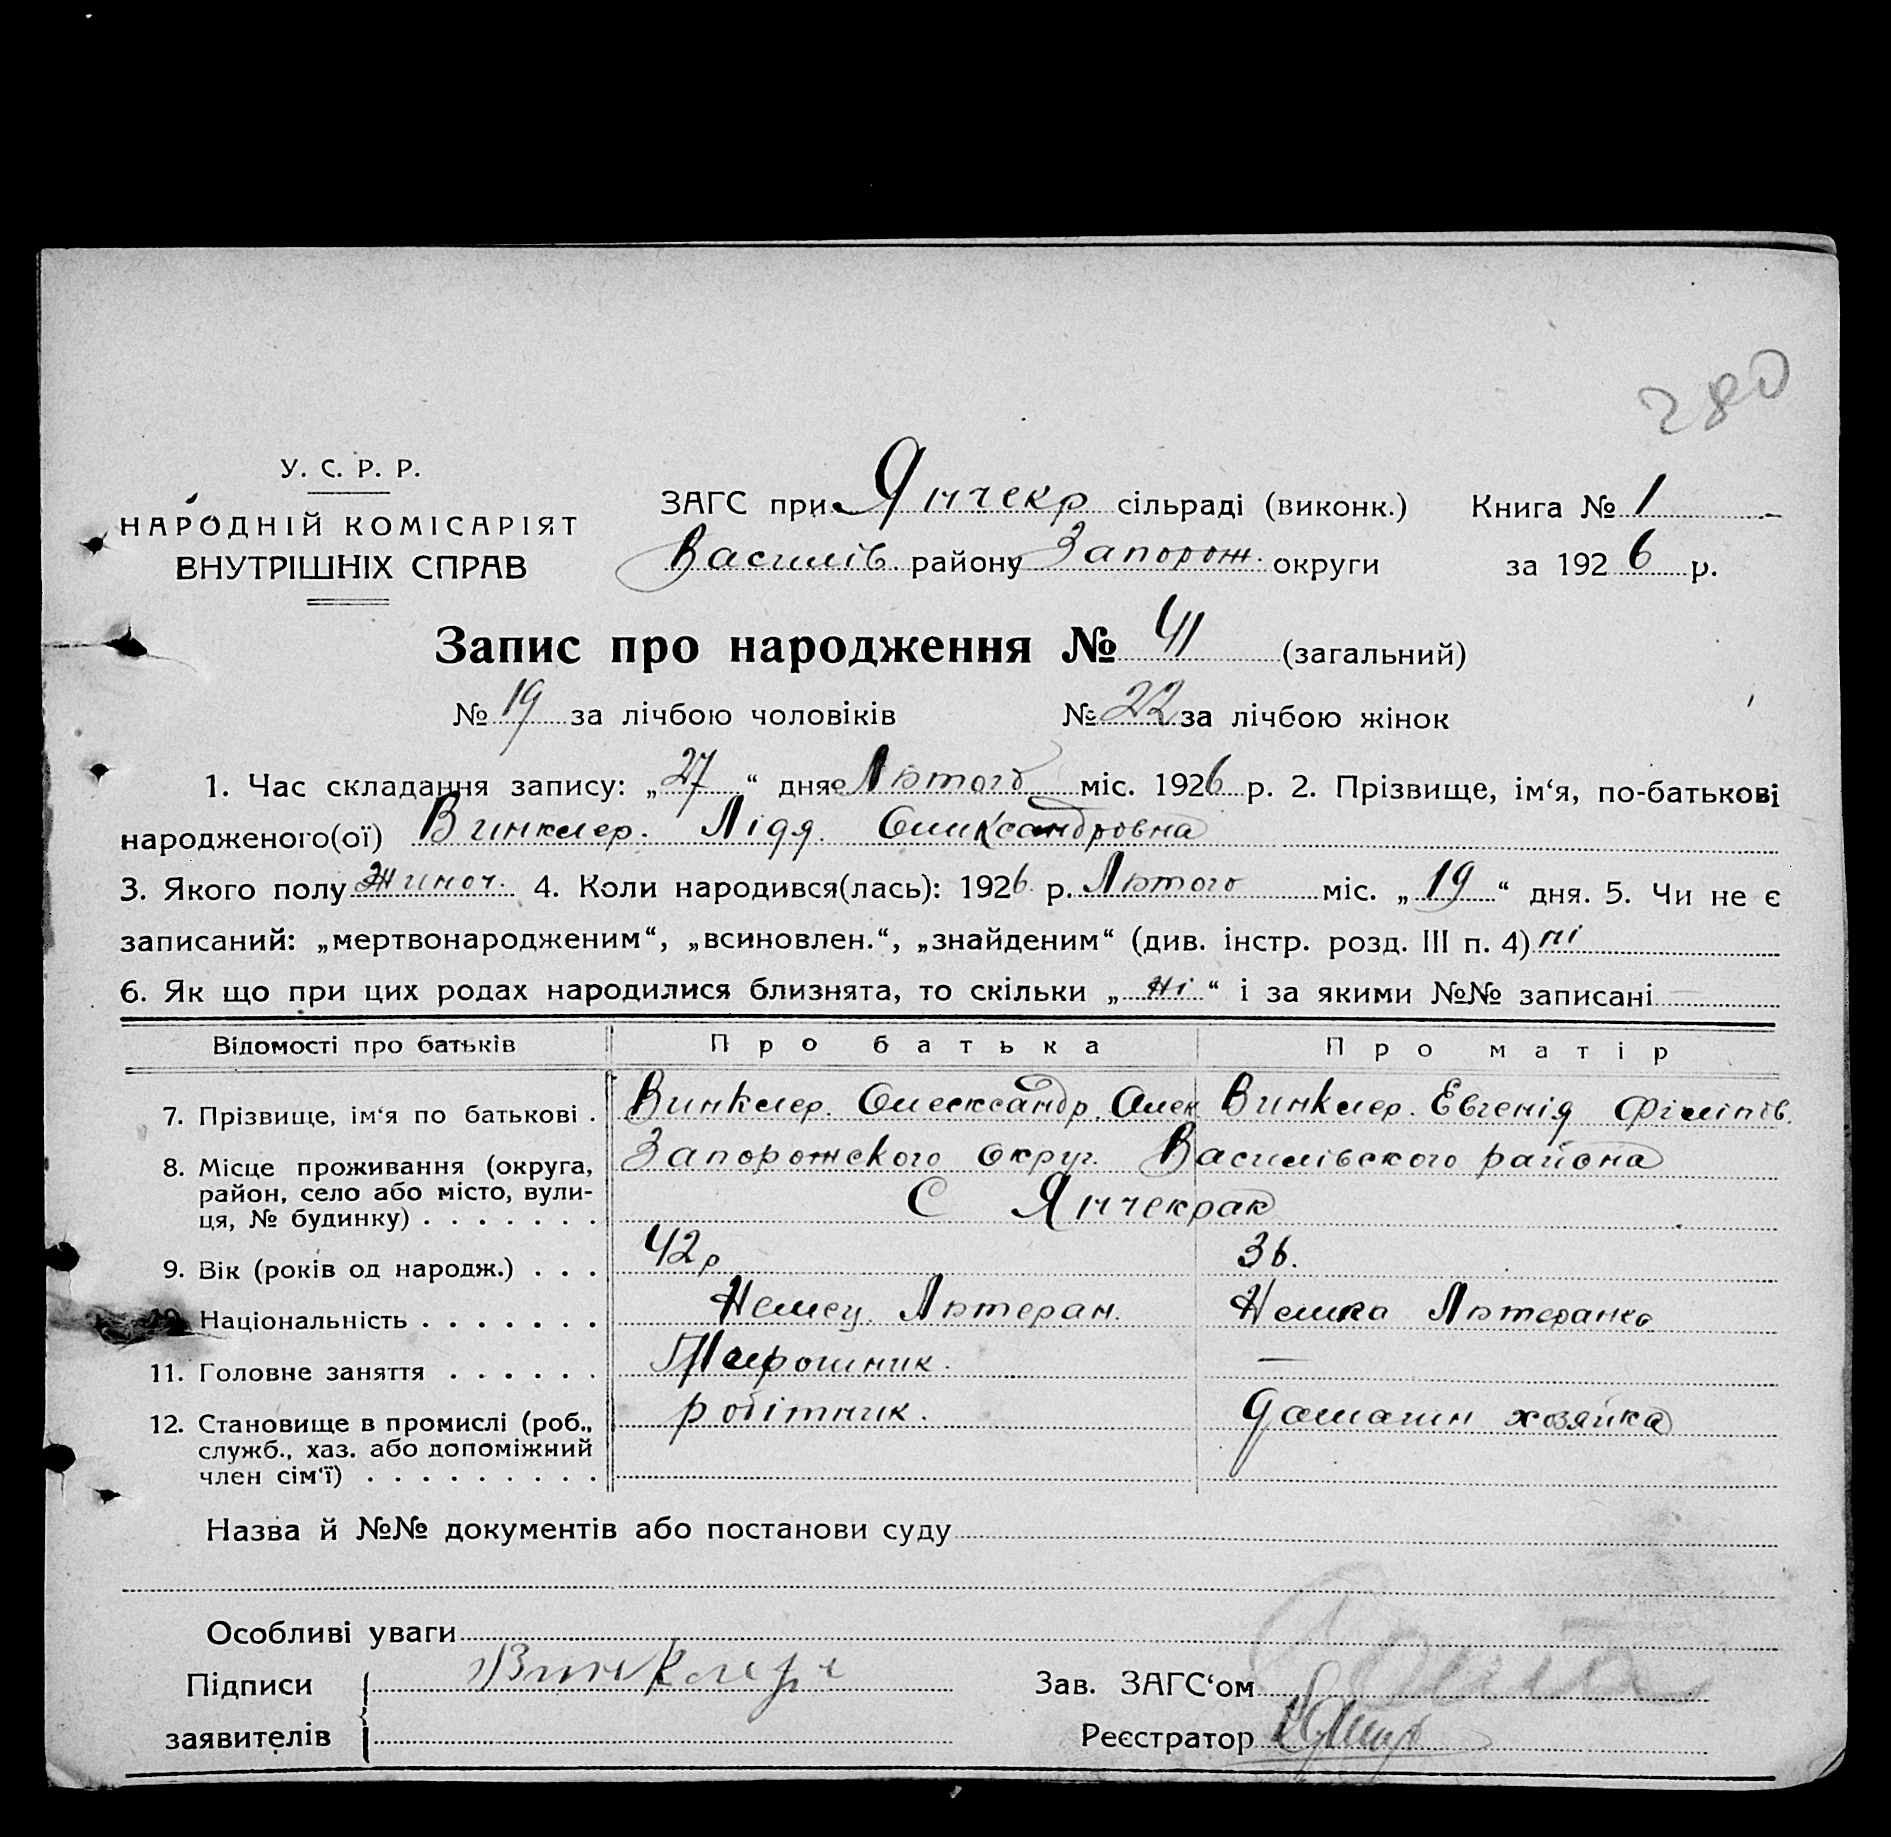 280
У. С. Р. Р.
НАРОДНІЙ КОМІСАРІЯТ
ВНУТРІШНІХ СПРАВ
ЗАГС при Янчекр сільраді (виконк.) Книга № 1
Василів району Запорож. округи за 1926 р.
Запис про народження № 41 (загальний)
№ 19 за лічбою чоловіків № 22 за лічбою жінок
1. Час складання запису: „27“ дня Лютого міс. 1926 р. 2. Прізвище, ім‘я, по-батькові
народженого(ої) Винклер. Лідя. Оликсандровна
3. Якого полу Жиноч. 4. Коли народився(лась): 1926 р. Лютого міс. „19“ дня. 5. Чи не є
записаний: „мертвонародженим“, „всиновлен.“, „знайденим“ (див. інстр. розд. III п. 4) ні
6. Як що при цих родах народилися близнята, то скільки „ні“ і за якими №№ записані —
Відомості про батьків Про батька Про матір
7. Прізвище, ім‘я по батькові . Винклер. Олександр. Олек Винклер. Евгенія Філіпів.
8. Місце проживання (округа, Запорожского округ. Василівского района
район, село або місто, вули- С Янчекрак
ця, № будинку) . . . . . . .
9. Вік (років од народж.) . . . 42 р 36.
10. Національність . . . . . . . Немец. Лютеран. Немка Лютеранка
11. Головне заняття . . . . . . —
12. Становище в промислі (роб., робітник. Домашн хозяйка
служб., хаз. або допоміжний
член сім‘ї) . . . . . . . . .
Назва й №№ документів або постанови суду
Особливі уваги
Підписи Винклер Зав. ЗАГС‘ом
заявителів Реєстратор